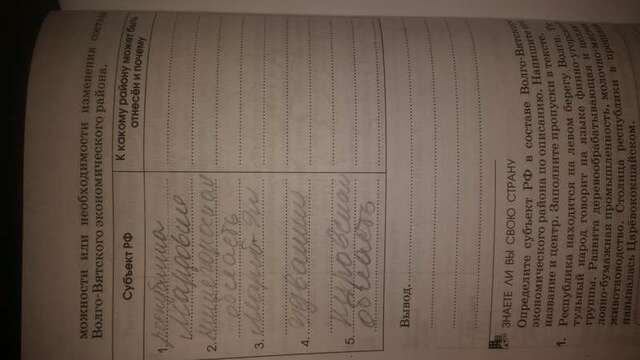 можности или необходимости изменения состава
Волго-Вятского экономического района.
Субъект РФ
К какому району может быть
отнесён и почему
1. республика
Мордовия
2. нижегородская
область
3. Марий Эл
4. чувашия
5. кировская
область
Вывод.
ЗНАЕТЕ ЛИ ВЫ СВОЮ СТРАНУ
Определите субъект РФ в составе Волго-Вятского
экономического района по описанию. Напишите его
название и центр. Заполните пропуски в тексте.
1. Республика находится на левом берегу Волги. Ти-
тульный народ говорит на языке финно-угорской
группы. Развита деревообрабатывающая и целлю-
лозно-бумажная промышленность, молочно-мясное
животноводство. Столица республики в прошлом
называлась Царёвококшайском.